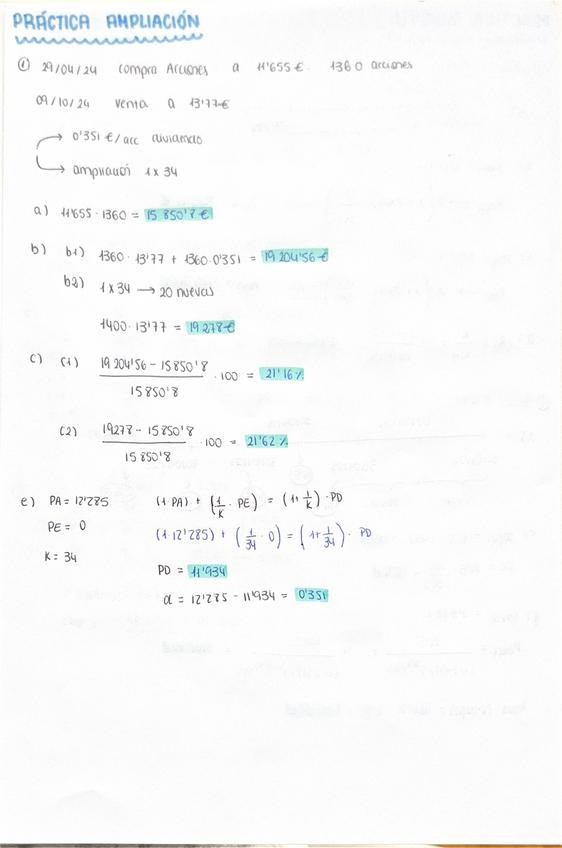 PRÁCTICA AMPLIACIÓN
① 29/04/24 compra Acciones a 11'655 €. 1360 acciones
09/10/24 venta a 13'77 €
→ 0'351 €/acc dividendo
→ ampliación 1 x 34
a) 11'655 · 1360 = 15 850'8 €
b) b1) 1360 · 13'77 + 1360 · 0'351 = 19 204'56 €
b2) 1 x 34 → 20 nuevas
1400 · 13'77 = 19 278 €
c) c1) (19 204'56 - 15 850'8) / 15 850'8 · 100 = 21'16 %
c2) (19278 - 15 850'8) / 15 850'8 · 100 = 21'62 %
e) PA = 12'285 (1 · PA) + (1/K · PE) = (1 + 1/K) · PD
PE = 0 (1 · 12'285) + (1/34 · 0) = (1 + 1/34) · PD
K = 34
PD = 11'934
d = 12'285 - 11'934 = 0'351